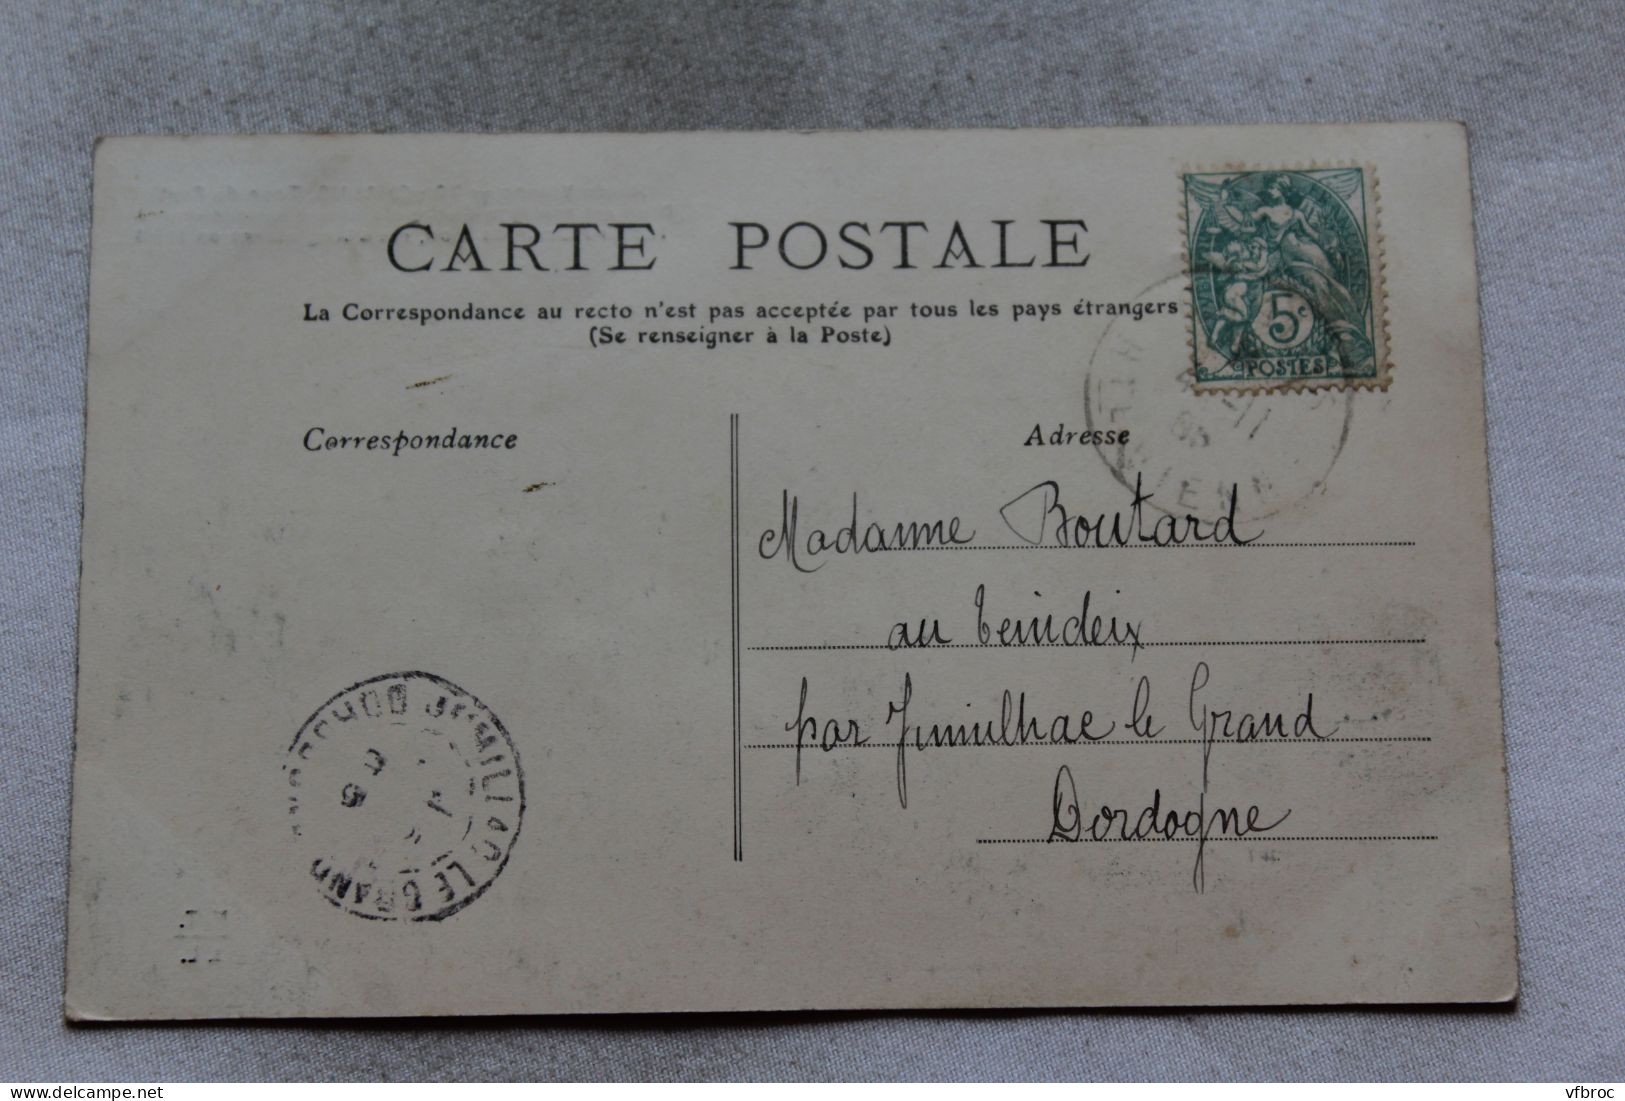 CARTE POSTALE
La Correspondance au recto n'est pas acceptée par tous les pays étrangers
(Se renseigner à la Poste)
5c
POSTES
Correspondance
Adresse
Madame Boutard
au Teindeix
par Jumilhac le Grand
Dordogne
JUMILHAC LE GRAND
vfbroc